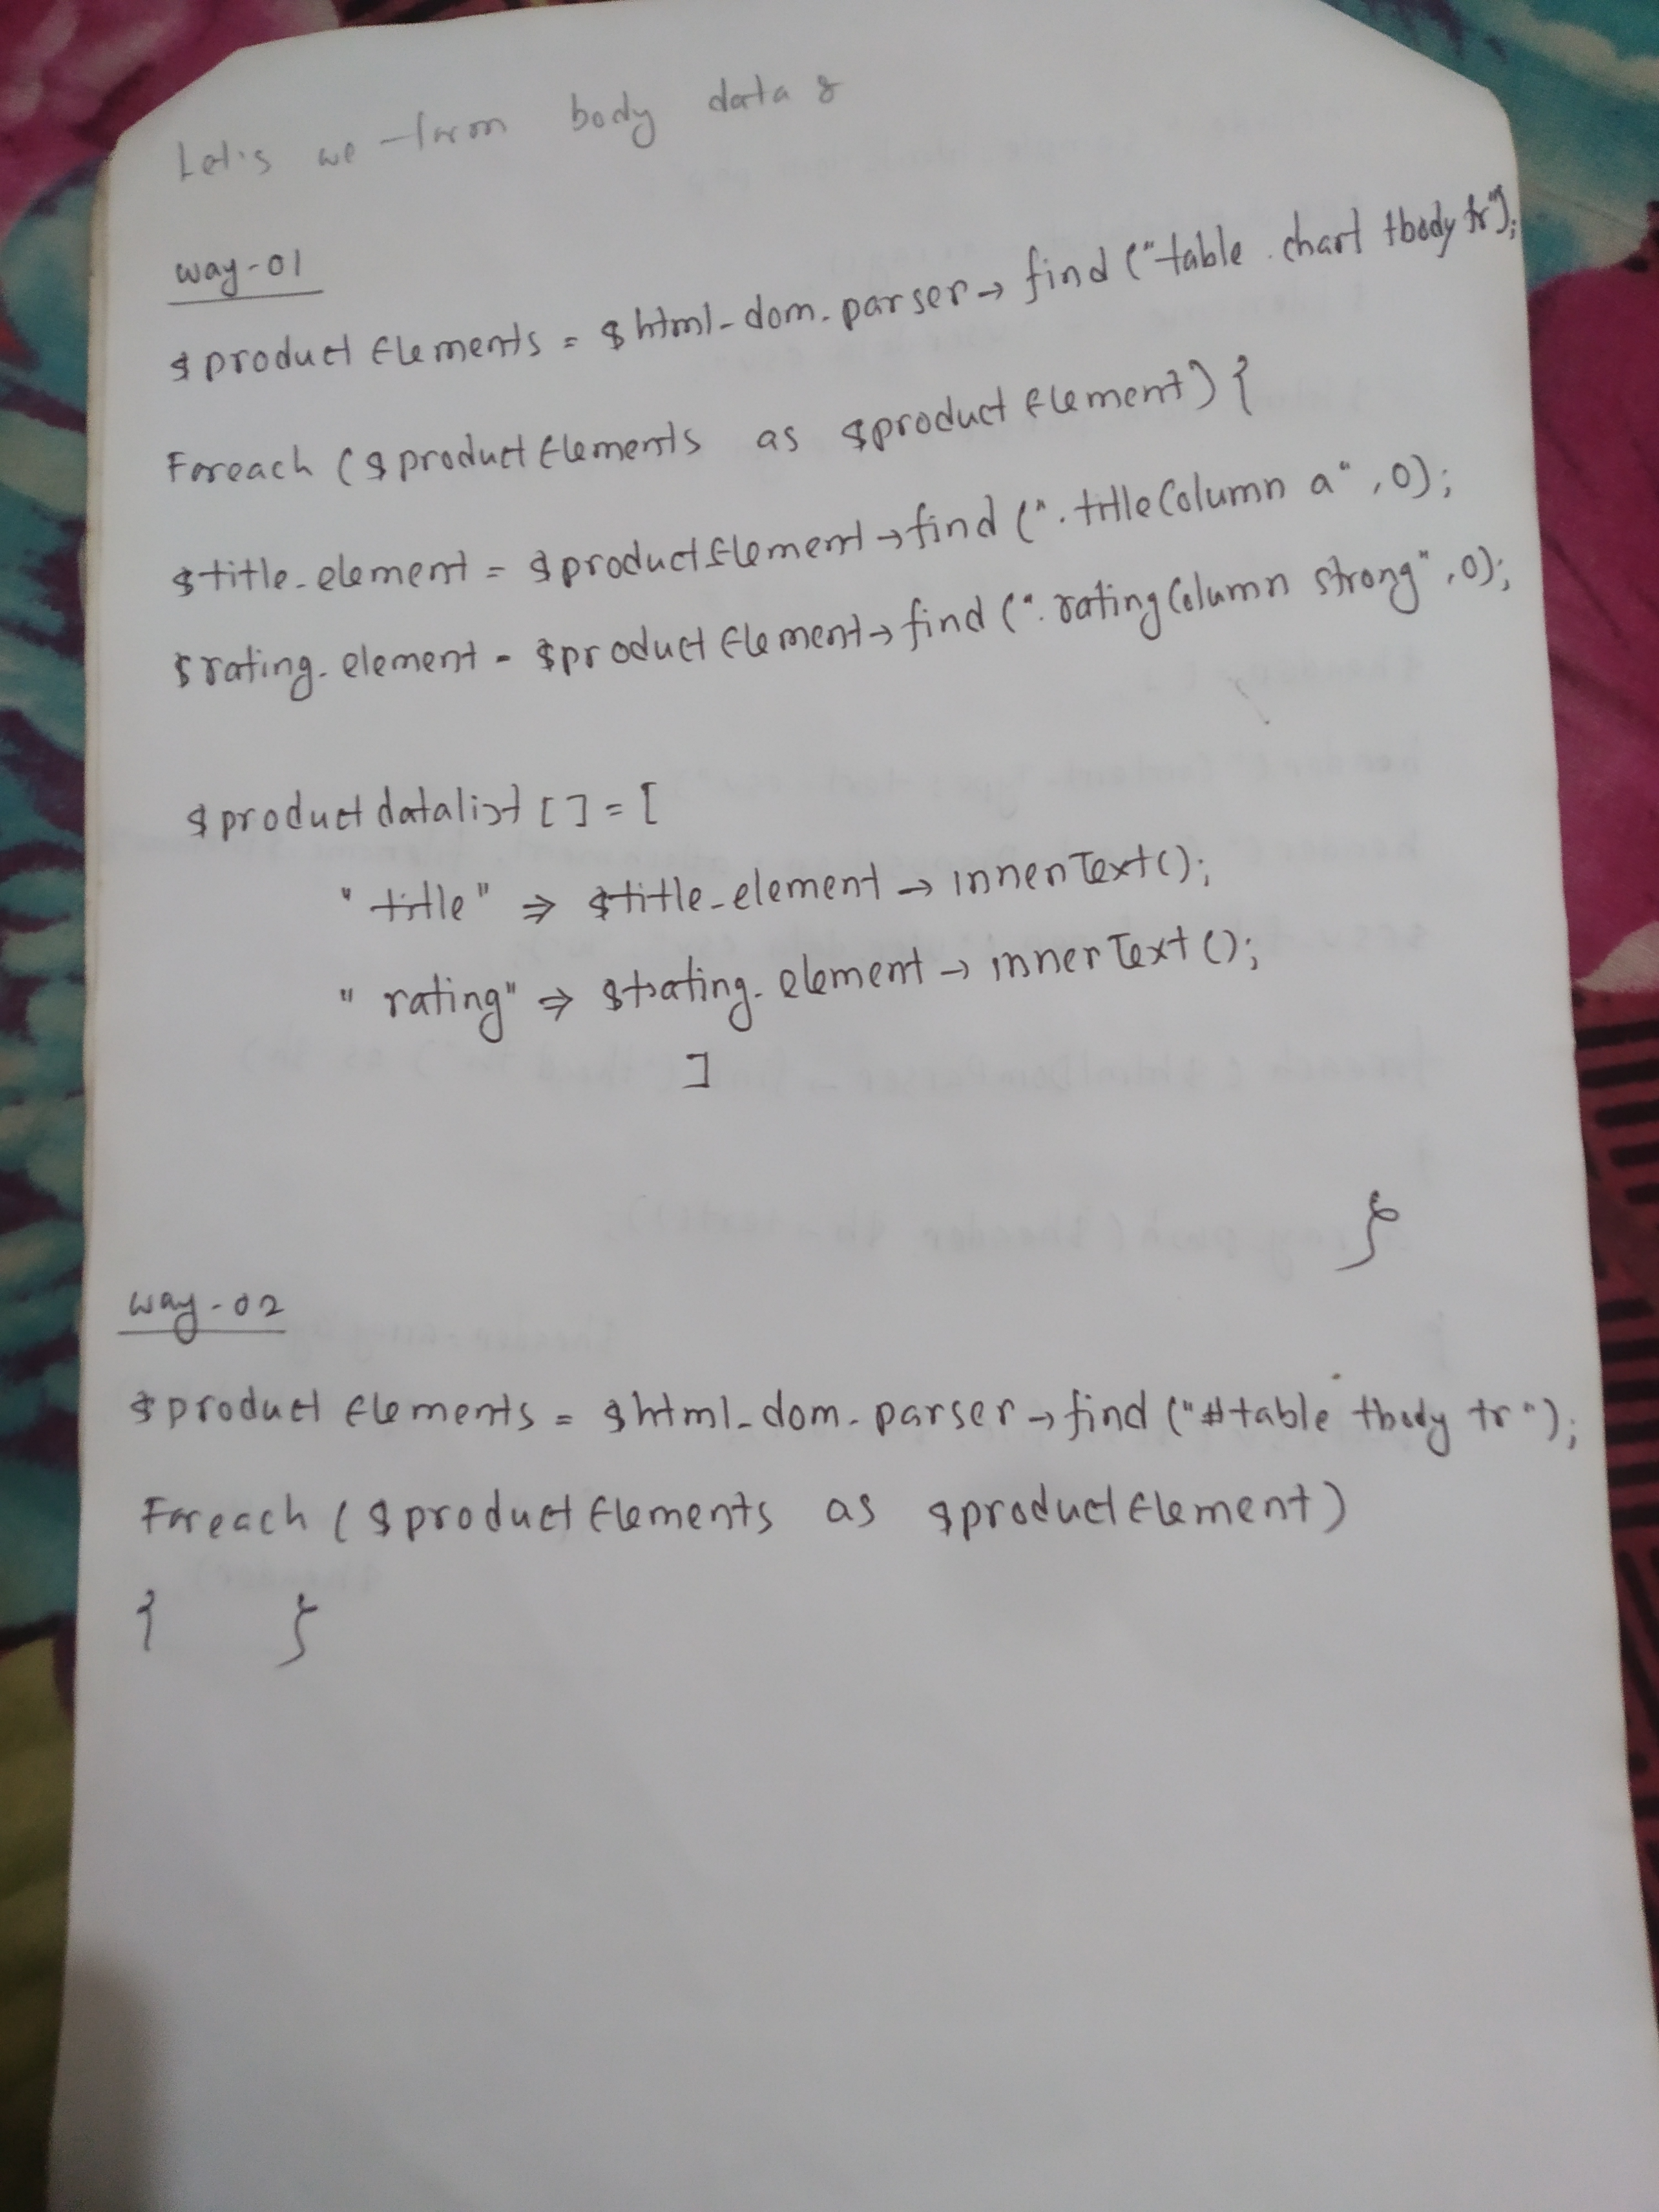 Let's we from body data :
way-01
$productElements = $html-dom-parser→find("table .chart tbody tr");
Foreach ($productElements as $productElement) {
$title-element = $productElement→find(".titleColumn a", 0);
$rating-element = $productElement→find(".ratingColumn strong", 0);
$productdatalist [] = [
"title" ⇒ $title-element → innerText();
"rating" ⇒ $rating-element → innerText();
]
}
way-02
$productElements = $html-dom-parser→find("#table tbody tr");
Foreach ($productElements as $productElement)
{ }